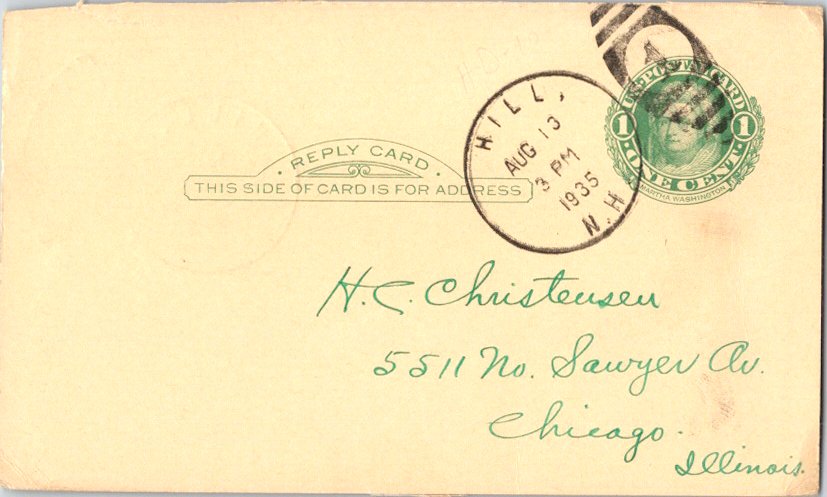 U.S. POSTAL CARD
1 1
ONE CENT
MARTHA WASHINGTON
HILL,
AUG 13
3 PM
1935
N.H
REPLY CARD
THIS SIDE OF CARD IS FOR ADDRESS
H. C. Christensen
5511 No. Sawyer Av.
Chicago.
Illinois.